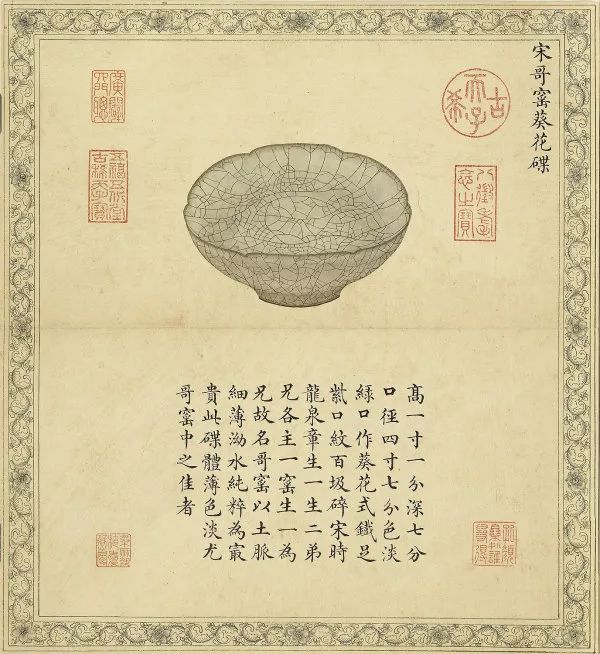 宋哥窰葵花碟
古希天子
八徵耄念之寶
五福五代堂古稀天子寶
髙一寸一分深七分
口徑四寸七分色淡
緑口作葵花式鐵足
紫口紋百圾碎宋時
龍泉章生一生二弟
兄各主一窰生一為
兄故名哥窰以土脈
細薄泑水純粹為冣
貴此碟體薄色淡尤
哥窰中之佳者